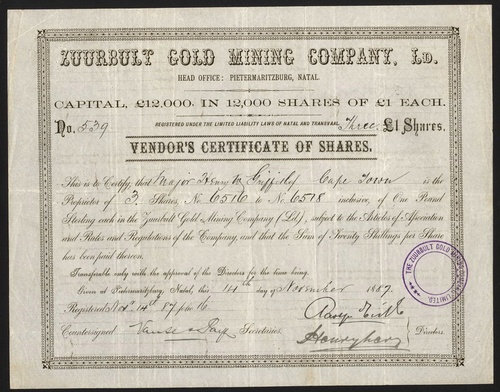 ZUURBULT GOLD MINING COMPANY, LD.
HEAD OFFICE: PIETERMARITZBURG, NATAL.
CAPITAL, £12,000, IN 12,000 SHARES OF £1 EACH.
No. 539 REGISTERED UNDER THE LIMITED LIABILITY LAWS OF NATAL AND TRANSVAAL. Three £1 Shares.
VENDOR'S CERTIFICATE OF SHARES.
This is to Certify, that Major Henry Cape Town is the
Proprietor of 3 Shares, No. 6516 to No. 6518 inclusive, of One Pound
Sterling each in the Zuurbult Gold Mining Company (Ld), subject to the Articles of Association
and Rules and Regulations of the Company, and that the Sum of Twenty Shillings per Share
has been paid thereon.
Transferable only with the approval of the Directors for the time being.
Given at Pietermaritzburg, Natal, this 14th day of November 1887.
Registered Nov 14th 87
Countersigned Secretaries. Directors.
THE ZUURBULT GOLD MINING COMPANY LIMITED.